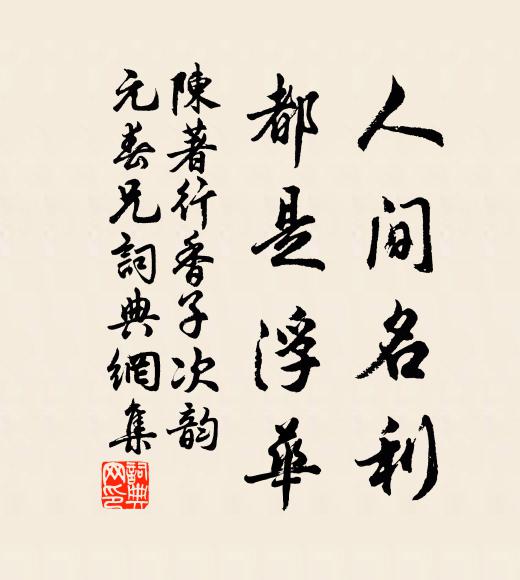 人間名利
都是浮華
陳著行香子次韵
元春兄詞典網集
詞典
网印